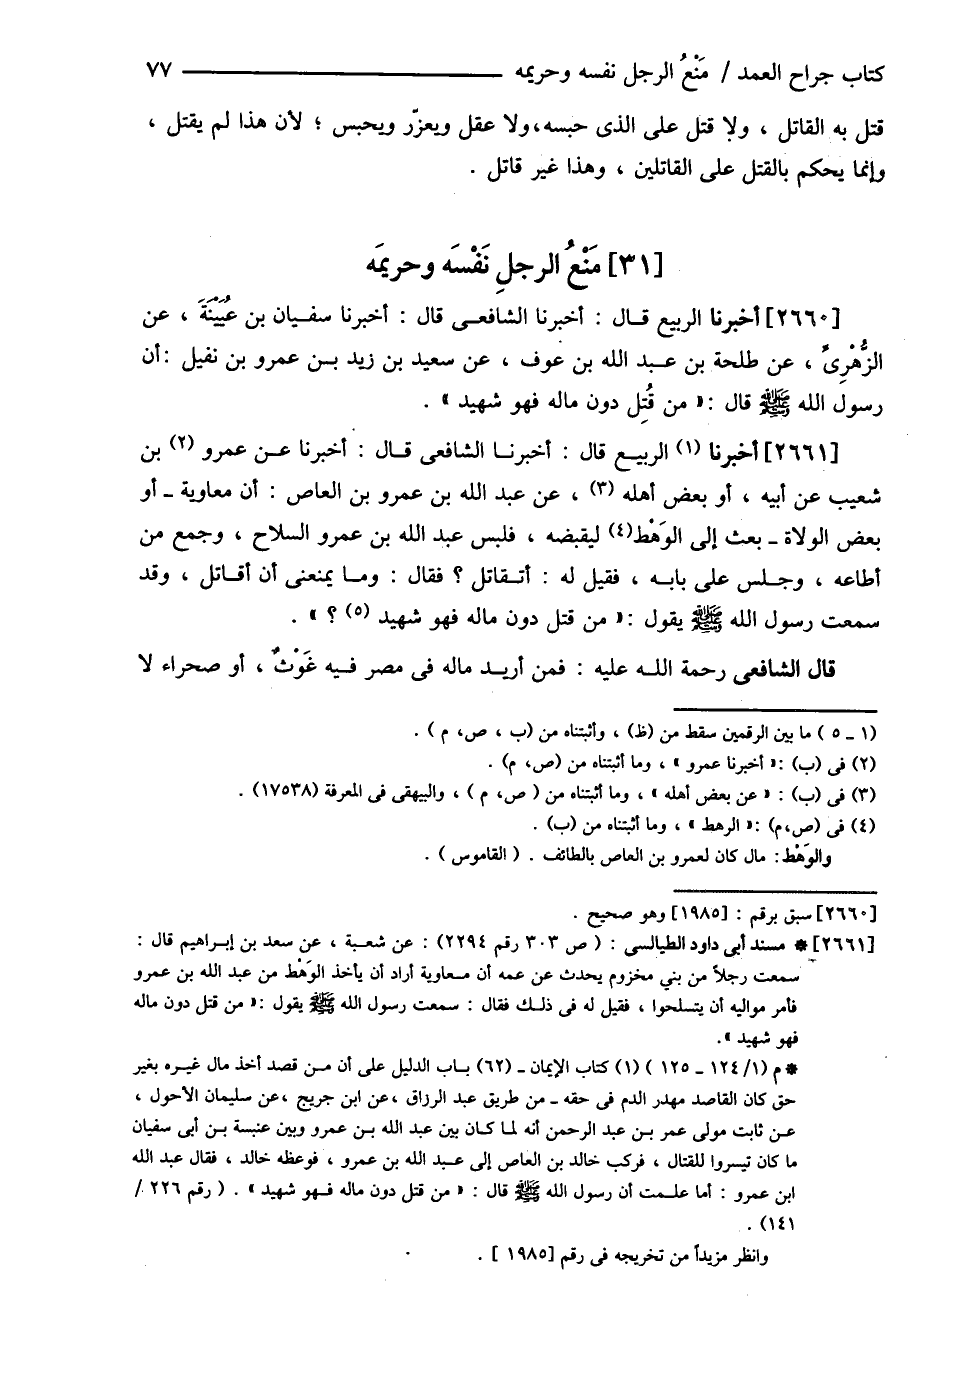 كتاب جراح العمد / مَنْعُ الرجل نفسه وحريمه ــــــــــــــ ٧٧
قتل به القاتل ، ولا قتل على الذى حبسه،ولا عقل ويعزّر ويحبس ؛ لأن هذا لم يقتل ،
وإنما يحكم بالقتل على القاتلين ، وهذا غير قاتل .
[٣١] مَنْعُ الرجلِ نَفْسَه وحريمَه
[٢٦٦٠] أخبرنا الربيع قال : أخبرنا الشافعى قال : أخبرنا سفيان بن عُيَيْنَةَ ، عن
الزُّهْرِىِّ ، عن طلحة بن عبد الله بن عوف ، عن سعيد بن زيد بن عمرو بن نفيل :أن
رسول الله ﷺ قال :« من قُتِل دون ماله فهو شهيد » .
[٢٦٦١] أخبرنا (١) الربيع قال : أخبرنا الشافعى قال : أخبرنا عن عمرو (٢) بن
شعيب عن أبيه ، أو بعض أهله (٣) ، عن عبد الله بن عمرو بن العاص : أن معاوية ـ أو
بعض الولاة ـ بعث إلى الوَهْط(٤) ليقبضه ، فلبس عبد الله بن عمرو السلاح ، وجمع من
أطاعه ، وجلس على بابه ، فقيل له : أتقاتل ؟ فقال : وما يمنعنى أن أقاتل ، وقد
سمعت رسول الله ﷺ يقول :« من قتل دون ماله فهو شهيد (٥) ؟ » .
قال الشافعى رحمة الله عليه : فمن أريد ماله فى مصر فيه غَوْثٌ ، أو صحراء لا
(١ ـ ٥ ) ما بين الرقمين سقط من (ظ) ، وأثبتناه من (ب ، ص، م ) .
(٢) فى (ب) :« أخبرنا عمرو » ، وما أثبتناه من (ص، م) .
(٣) فى (ب) : « عن بعض أهله » ، وما أثبتناه من ( ص، م ) ، والبيهقى فى المعرفة (١٧٥٣٨) .
(٤) فى (ص،م) :« الرهط » ، وما أثبتناه من (ب) .
والوَهْط: مال كان لعمرو بن العاص بالطائف . ( القاموس ) .
[٢٦٦٠] سبق برقم : [١٩٨٥] وهو صحيح .
[٢٦٦١] * مسند أبى داود الطيالسى : ( ص ٣٠٣ رقم ٢٢٩٤) : عن شعبة ، عن سعد بن إبراهيم قال :
سمعت رجلاً من بني مخزوم يحدث عن عمه أن معاوية أراد أن يأخذ الوَهْط من عبد الله بن عمرو
فأمر مواليه أن يتسلحوا ، فقيل له فى ذلك فقال : سمعت رسول الله ﷺ يقول :« من قتل دون ماله
فهو شهيد ».
* م (١/ ١٢٤ ـ ١٢٥ ) (١) كتاب الإيمان ـ (٦٢) باب الدليل على أن من قصد أخذ مال غيره بغير
حق كان القاصد مهدر الدم فى حقه ـ من طريق عبد الرزاق ،عن ابن جريج ،عن سليمان الأحول ،
عن ثابت مولى عمر بن عبد الرحمن أنه لما كان بين عبد الله بن عمرو وبين عنبسة بن أبى سفيان
ما كان تيسروا للقتال ، فركب خالد بن العاص إلى عبد الله بن عمرو ، فوعظه خالد ، فقال عبد الله
ابن عمرو : أما علمت أن رسول الله ﷺ قال : « من قتل دون ماله فهو شهيد » . ( رقم ٢٢٦ /
١٤١) .
وانظر مزيداً من تخريجه فى رقم [١٩٨٥ ] .